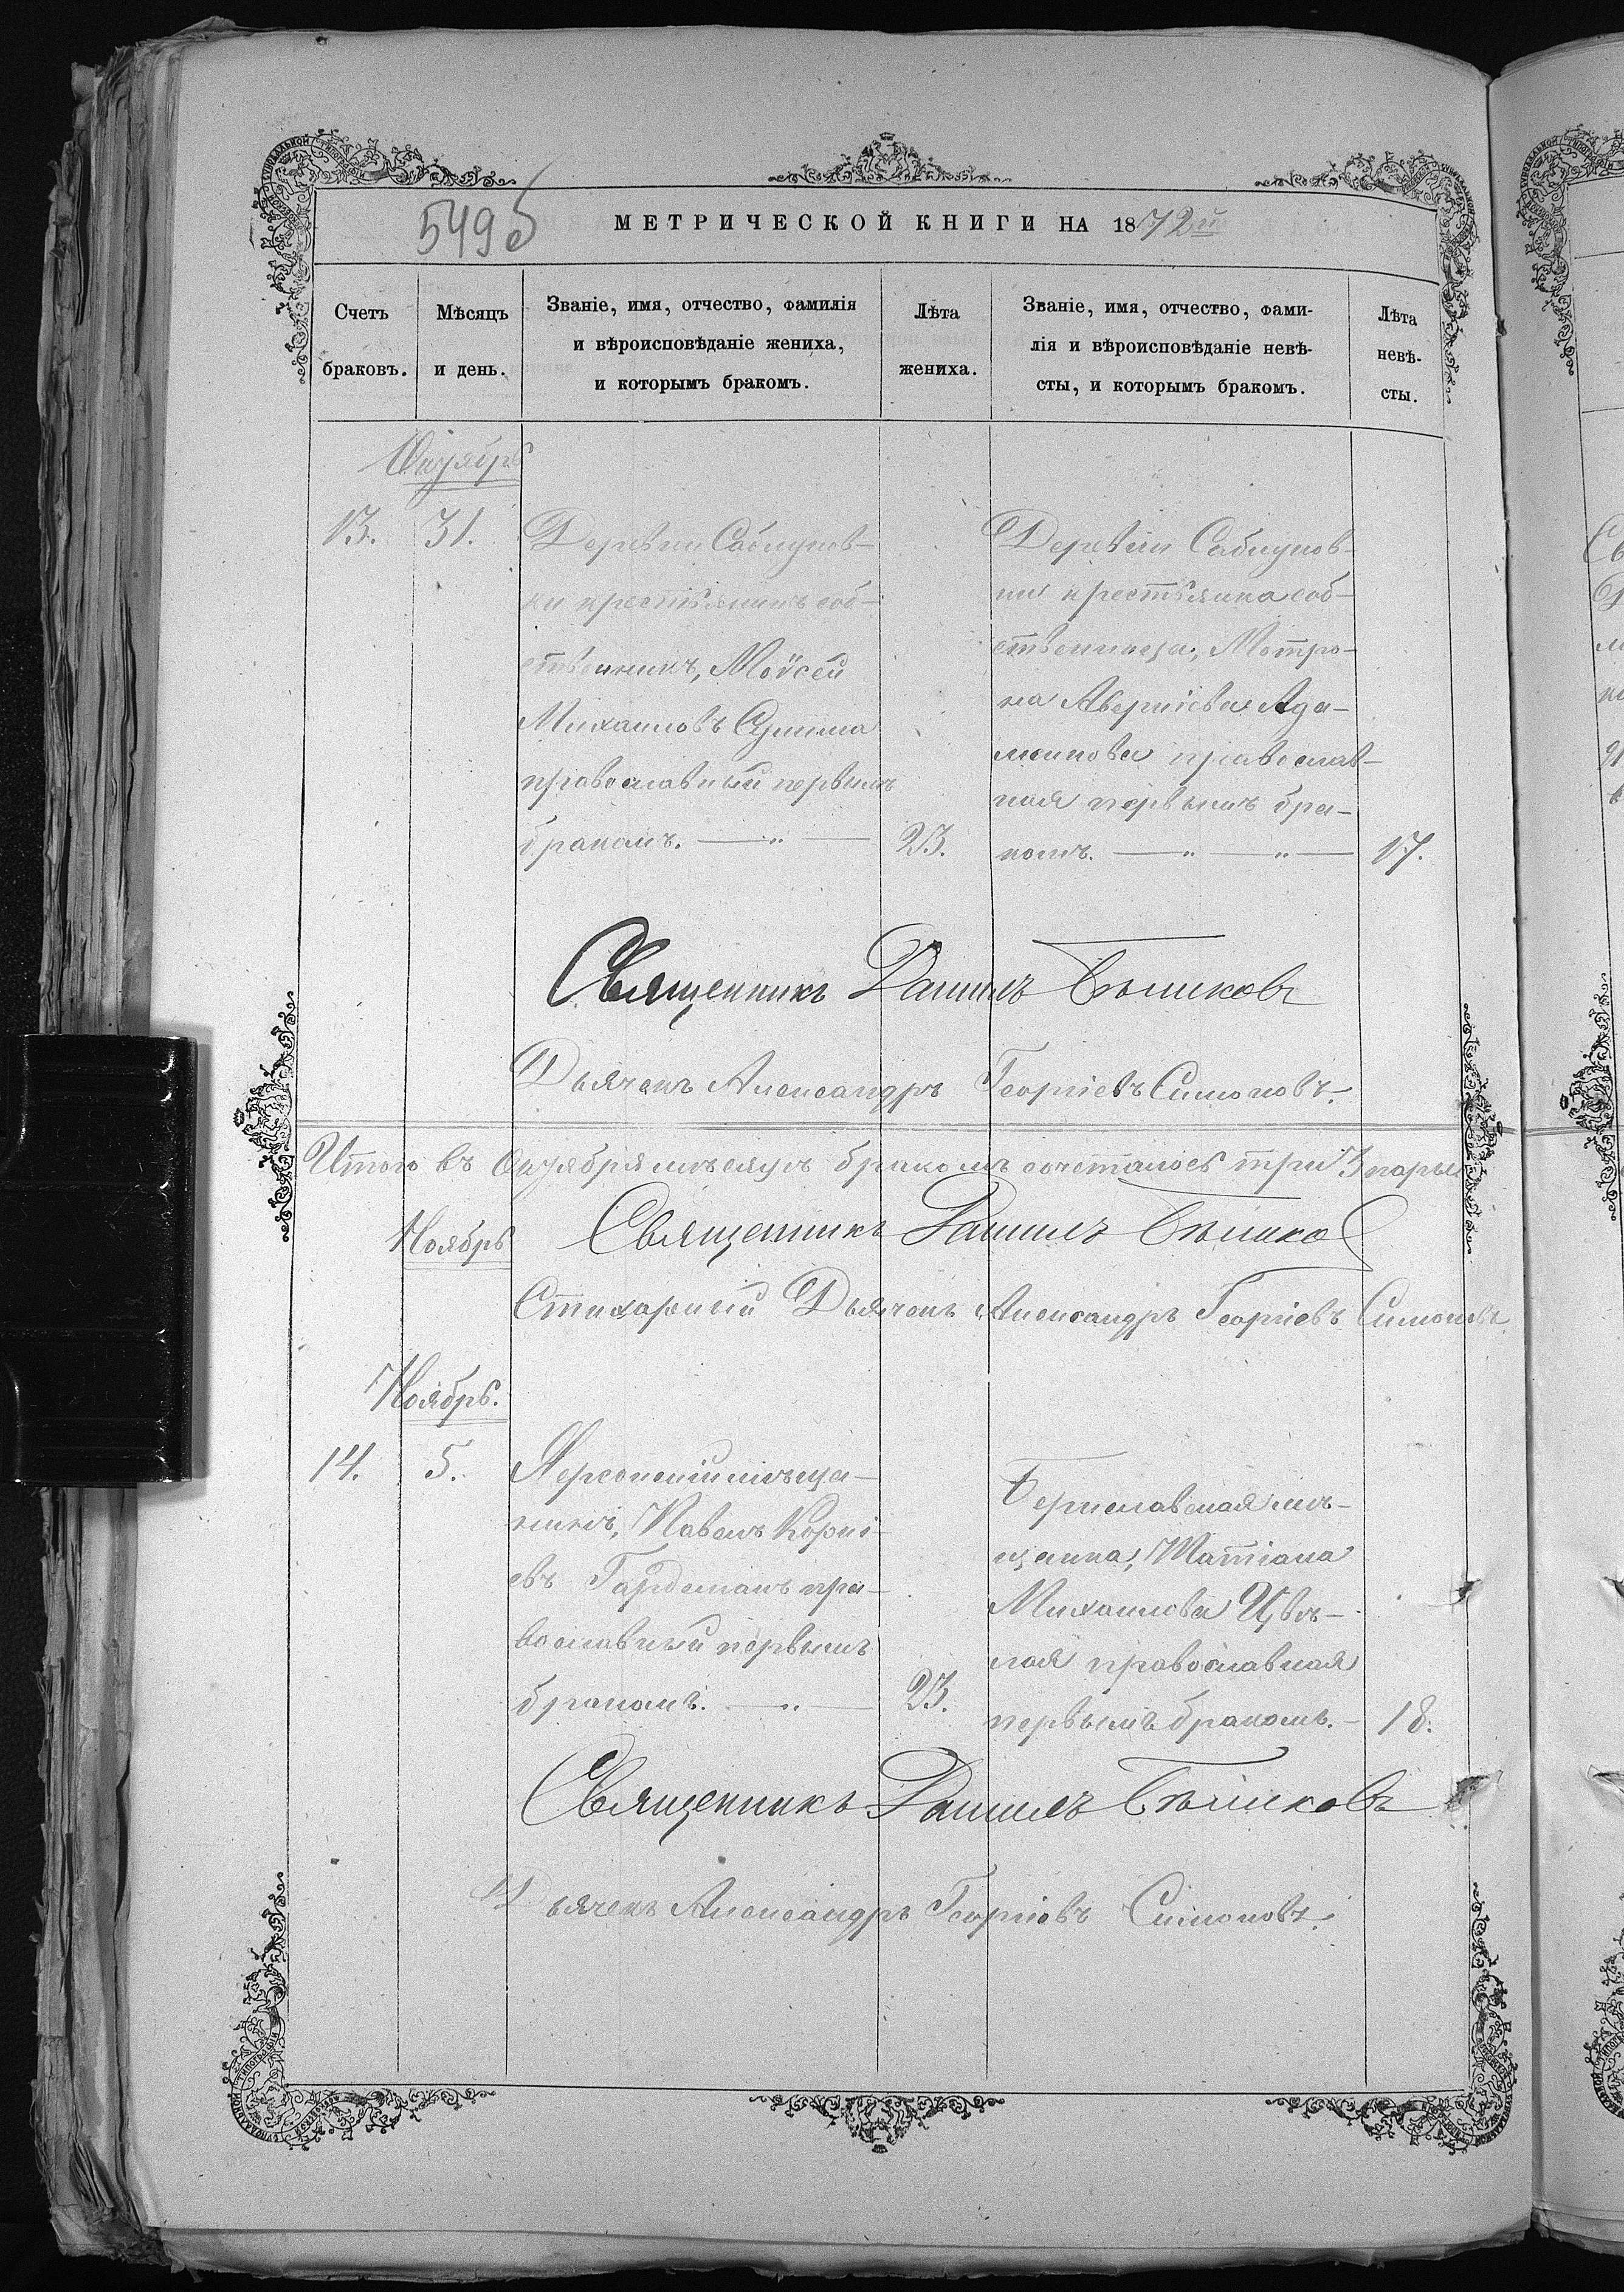 549об
МЕТРИЧЕСКОЙ КНИГИ НА 1872й
Счетъ браковъ.
Мѣсяцъ и день.
Званіе, имя, отчество, фамилія
и вѣроисповѣданіе жениха,
и которымъ бракомъ.
Лѣта жениха.
Званіе, имя, отчество, фами-
лія и вѣроисповѣданіе невѣ-
сты, и которымъ бракомъ.
Лѣта невѣ-
сты.
Октябрь
13. 31.
Деревни Саблуков-
ки крестьянинъ соб-
ственникъ, Моѵсей
Михаиловъ
православный первымъ
бракомъ. — „ — 23.
Деревни Саблуков-
ки крестьянка соб-
ственница, Мотро-
на Аверкіева Ада-
менкова православ-
ная первымъ бра-
комъ. — „ — „ — 17.
Священникъ Даниилъ Бѣликовъ
Дьячекъ Александръ Георгіевъ Симоновъ.
Итого въ Октябрѣ мѣсяцѣ бракомъ сочеталось три 3 пары
Ноябрь
Священникъ Даниилъ Бѣликов
Стихарный Дьячекъ Александръ Георгіевъ Симоновъ.
Ноябрь.
14. 5.
Херсонскій мѣща-
нинъ, Павелъ Корні-
евъ Гардеманъ пра-
вославный первымъ
бракомъ. — „ — 23.
Бериславская мѣ-
щанка, Татіана
Михаилова Цвѣ-
лая православная
первымъ бракомъ. — 18.
Священникъ Даниилъ Бѣликовъ
Дьячекъ Александръ Георгіевъ Симоновъ.